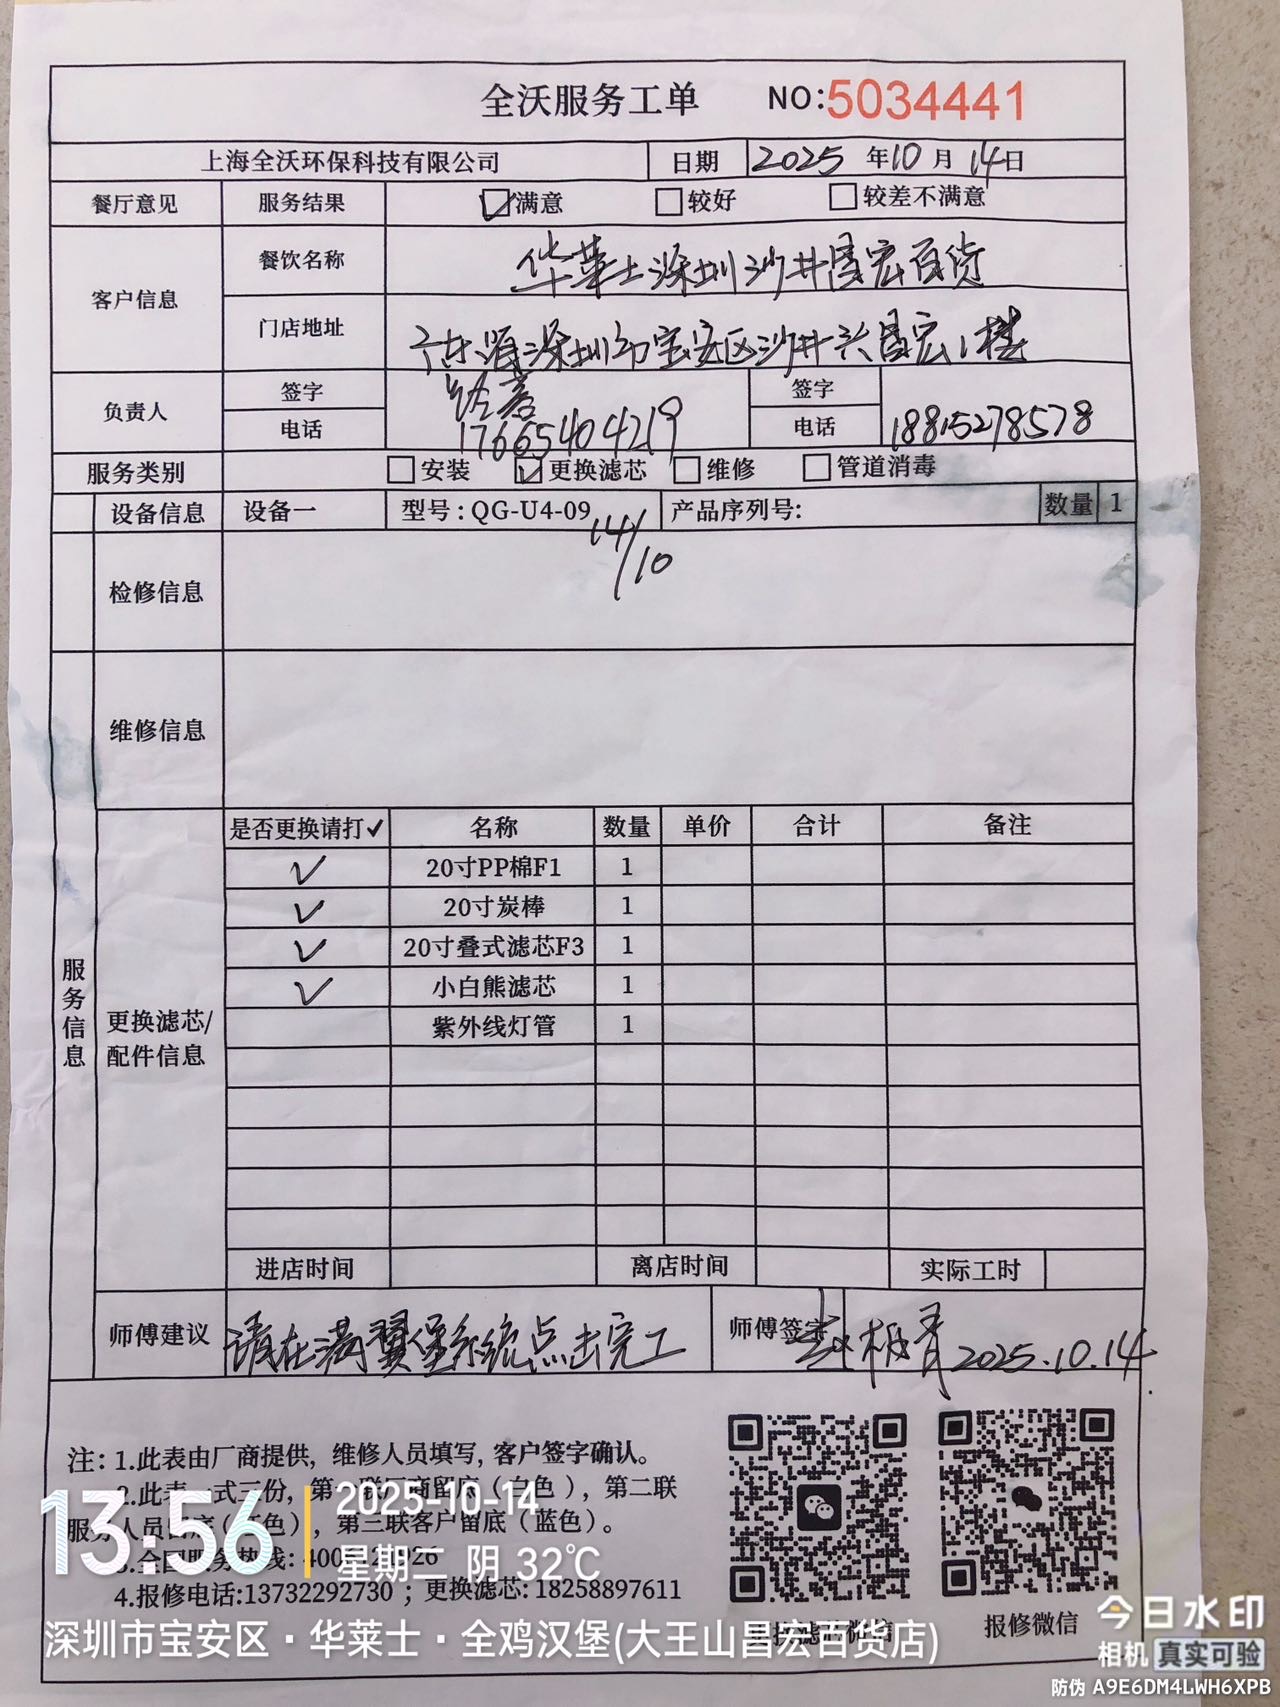 全沃服务工单 NO:5034441
上海全沃环保科技有限公司 日期 2025 年 10 月 14 日
餐厅意见 服务结果 ☑满意 □较好 □较差不满意
客户信息 餐饮名称 华莱士深圳沙井昌宏百货
门店地址 深圳市宝安区沙井兴昌宏1楼
负责人 签字 签字
电话 17665404219 电话 18815278578
服务类别 □安装 ☑更换滤芯 □维修 □管道消毒
设备信息 设备一 型号:QG-U4-09 产品序列号: 数量 1
14/10
检修信息
维修信息
服务信息
更换滤芯/配件信息
是否更换请打✓ 名称 数量 单价 合计 备注
✓ 20寸PP棉F1 1
✓ 20寸炭棒 1
✓ 20寸叠式滤芯F3 1
✓ 小白熊滤芯 1
紫外线灯管 1
进店时间 离店时间 实际工时
师傅建议 请在满翼堡系统点击完工 师傅签字 2025.10.14
注: 1.此表由厂商提供, 维修人员填写, 客户签字确认。
2.此表一式三份, 第一联厂商留底(白色), 第二联
服务人员留底(红色), 第三联客户留底(蓝色)。
3.全国服务热线:
4.报修电话:13732292730 ; 更换滤芯: 18258897611
更换滤芯微信 报修微信
13:56
2025-10-14
星期二 阴 32℃
深圳市宝安区·华莱士·全鸡汉堡(大王山昌宏百货店)
今日水印
相机 真实可验
防伪 A9E6DM4LWH6XPB